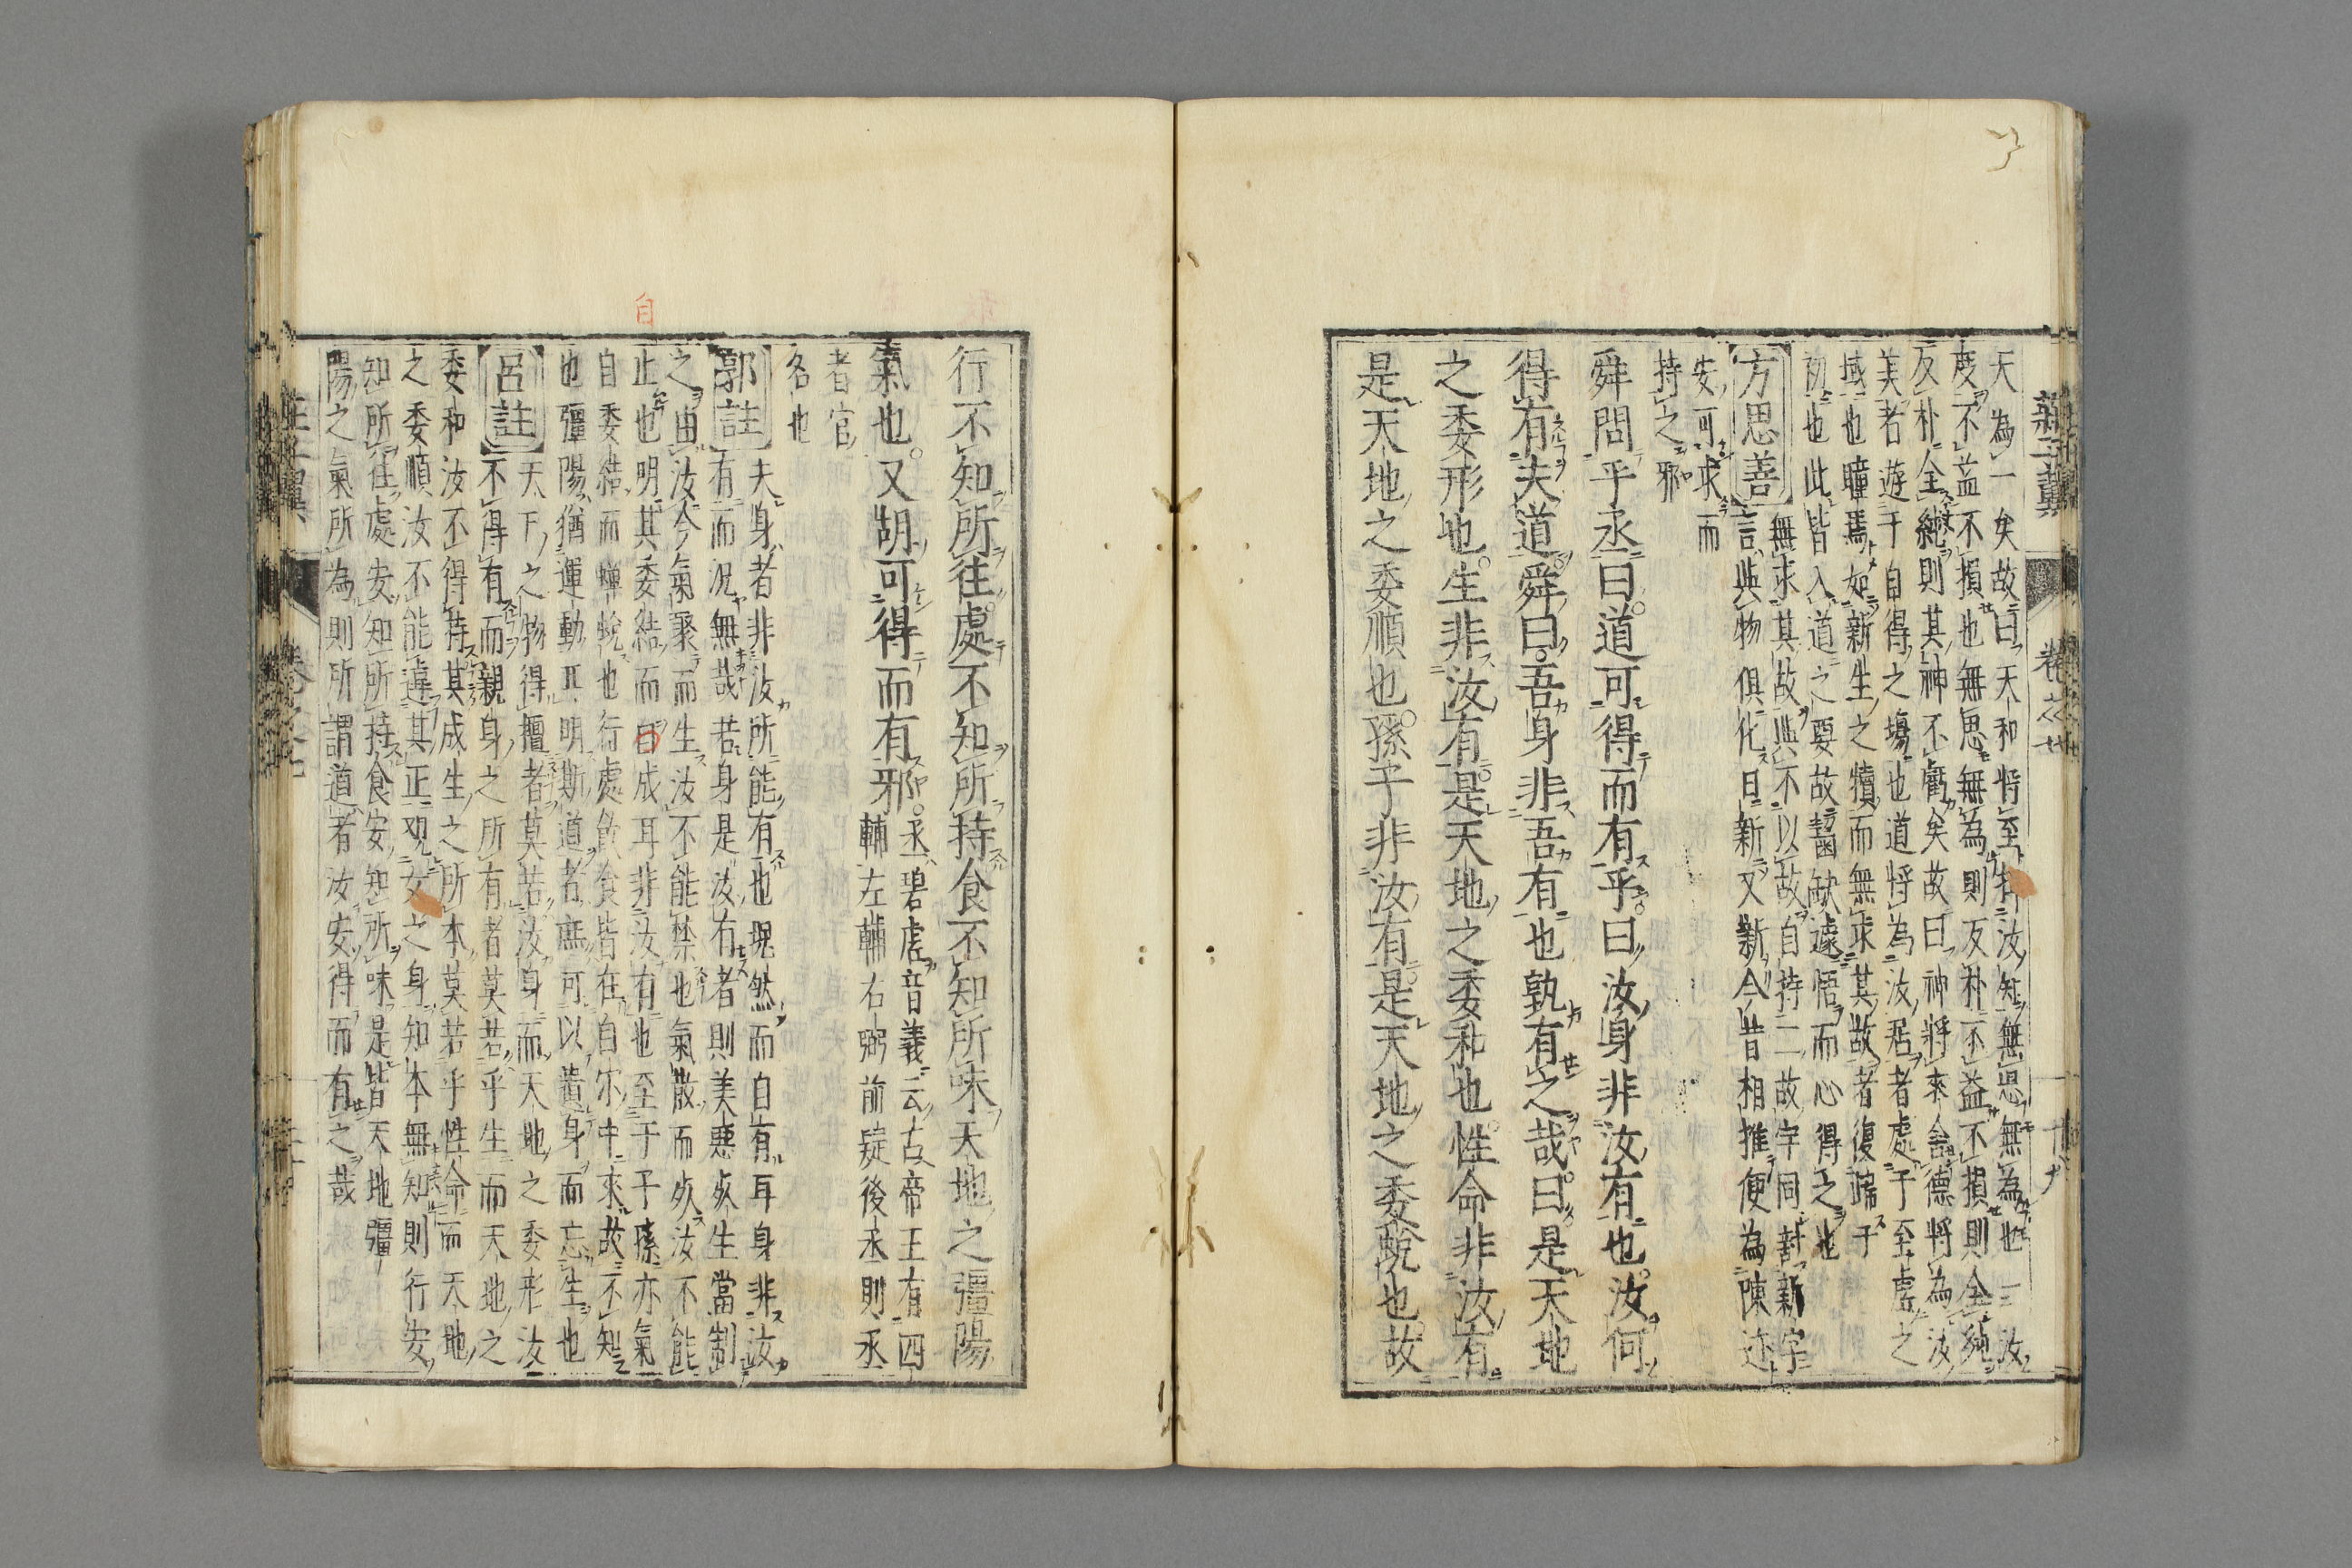 天為一矣故曰天和將至矣汝知無思無為也一汝
度不益不損也無思無為則反朴不益不損則全純
反朴全純則其神不虧矣故曰神將來舍德將為汝
美者遊于自得之場也道將為汝居者處于至虛之
域也瞳焉如新生之犢而無求其故者復歸于
初也此皆入道之要故齧缺遽悟而心得之也
方思善 無求其故與不以故自持二故字同對新字
言與物俱化日新又新今昔相推便為陳迹
安可求而
持之邪
舜問乎丞曰道可得而有乎曰汝身非汝有也汝何
得有夫道舜曰吾身非吾有也孰有之哉曰是天地
之委形也生非汝有是天地之委和也性命非汝有
是天地之委順也孫子非汝有是天地之委蛻也故
行不知所往處不知所持食不知所味天地之彊陽
氣也又胡可得而有邪 丞碧虛音義云古帝王有四
輔左輔右弼前疑後丞則丞
者官
名也
郭註 夫身者非汝所能有也塊然而自有耳身非汝
有而況無哉若身是汝有者則美惡死生當制
之由汝今氣聚而生汝不能禁也氣散而死汝不能
止也明其委結而自成耳非汝有也至于子孫亦氣
自委結而蟬蛻也行處飲食皆在自尓中來故不知
也彊陽猶運動耳明斯道者庶可以遺身而忘生也
呂註 天下之物得擅者莫若汝身而天地之委形汝
不得有而親身之所有者莫若乎生而天地之
委和汝不得持其成生之所本莫若乎性命而天地
之委順汝不能違其正觀汝之身知本無知則行安
知所往處安知所持食安知所味是皆天地彊
陽之氣所為則所謂道者汝安得而有之哉